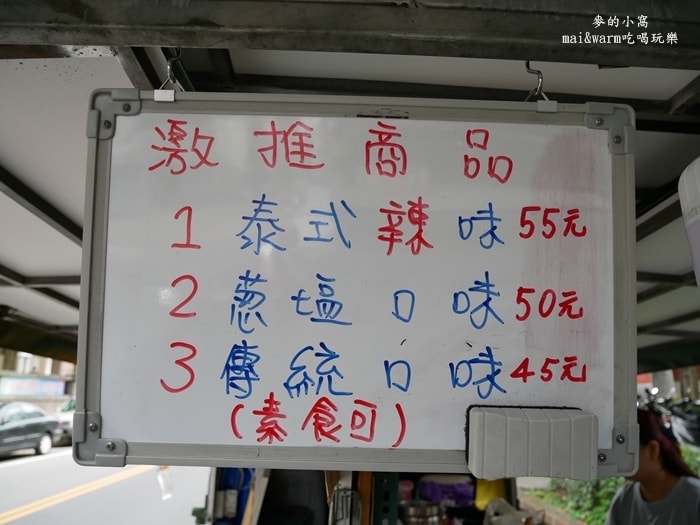 麥的小窩
mai&warm吃喝玩樂
激推商品
1 泰式辣味 55元
2 葱塩口味 50元
3 傳統口味 45元
(素食可)